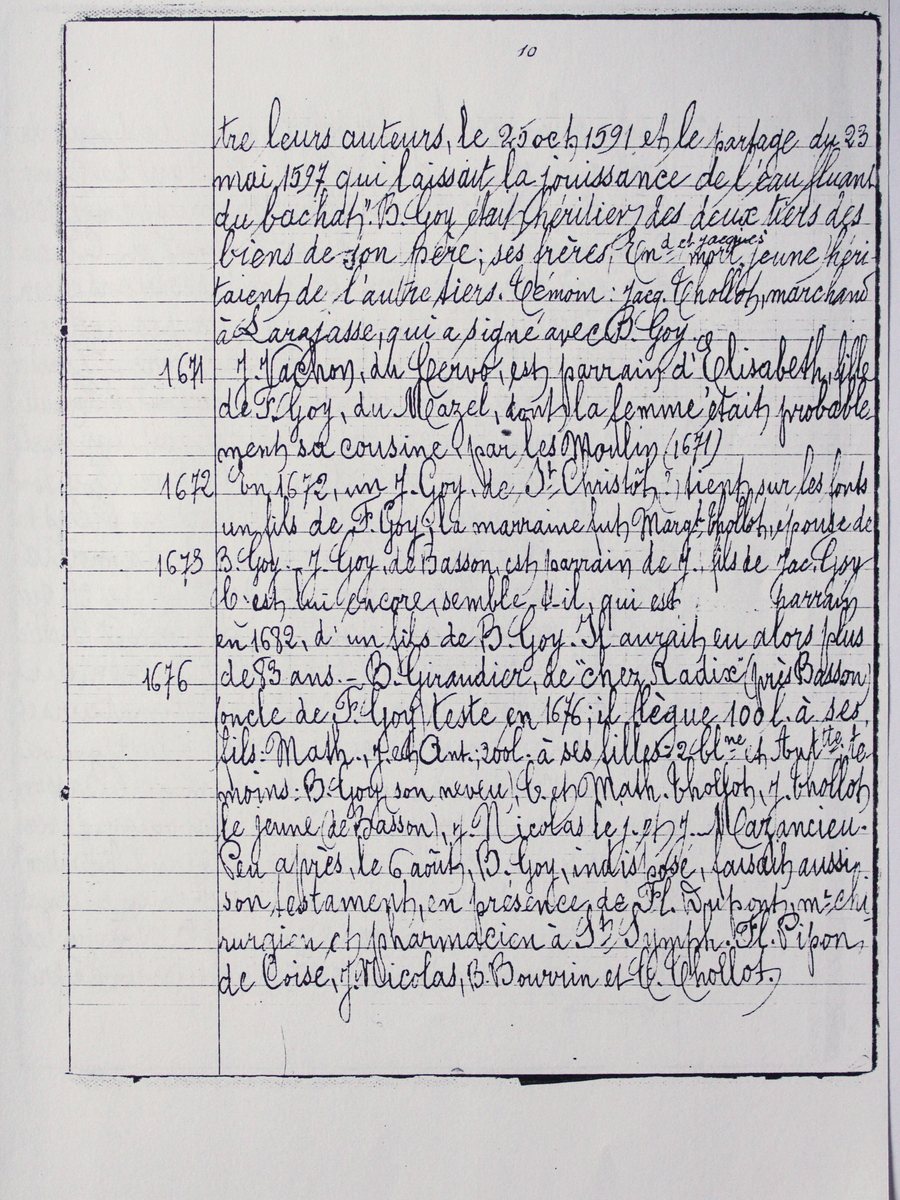 10
tre leurs auteurs, le 25 oct 1591 et le partage du 23
mai 1597 qui laissait la jouissance de l'eau fluant
du bachat". B. Goy était héritier des deux tiers des
biens de son père; ses frères, Emd et Jacques mort jeune héri
taient de l'autre tiers. Témoin: Jacq. Thollot, marchand
à Larajasse, qui a signé avec B. Goy
1671 J. Vachon, du Cervo, est parrain d'Elisabeth, fille
de F. Goy, du Mazel, dont la femme était probable-
ment sa cousine par les Moulin (1671)
1672 En 1672, un J. Goy, de St Christôt ?, tient sur les fonts
un fils de F. Goy; la marraine fut Margte Thollot, épouse de
1673 B. Goy. - J. Goy, de Basson, est parrain de J., fils de Jac. Goy
C'est lui encore, semble-t-il, qui est parrain
en 1682, d'un fils de B. Goy. Il aurait eu alors plus
1676 de 83 ans. - B. Giraudier, de "chez Radix" (près Basson)
oncle de F. Goy teste en 1676; il lègue 100 l. à ses
fils: Math., J. et Ant.; 200l. à ses filles: 2 Clne et Antte té-
moins: B. Goy, son neveu, C. et Math. Thollot, J. Thollot
le jeune (de Basson), J. Nicolas le j. et J. Mazancieu.
Peu après, le 6 août, B. Goy, indisposé, faisait aussi
son testament, en présence de Fl. Dupont, me chi
rurgien et pharmacien à St Symph. Fl. Pipon,
de Coise, J. Nicolas, B. Bouvrin et C. Thollot